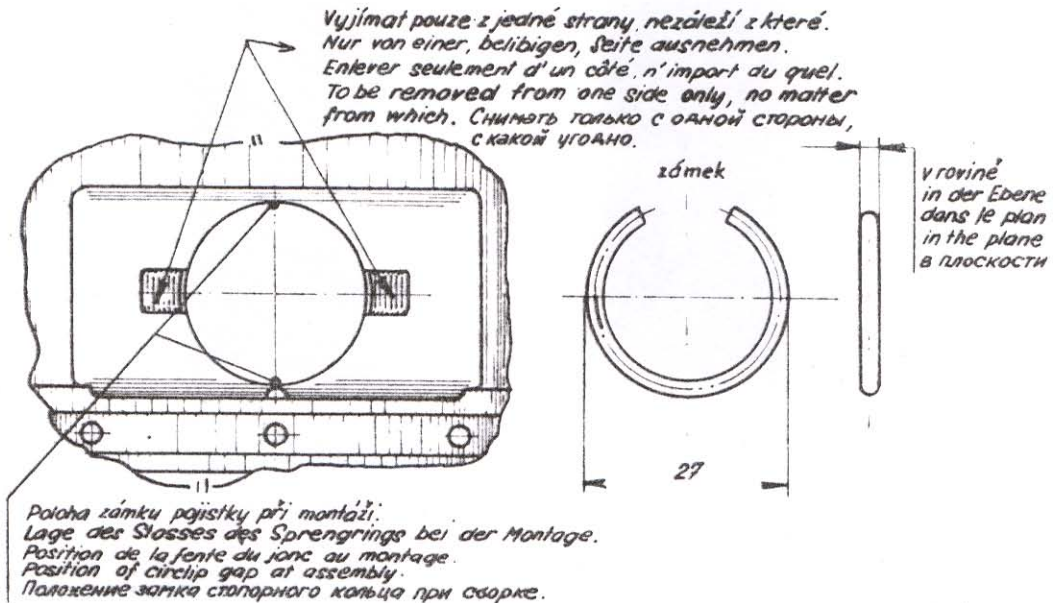 Vyjímat pouze z jedné strany, nezáleží z které.
Nur von einer, belibigen, Seite ausnehmen.
Enlever seulement d'un côté, n'import du quel.
To be removed from one side only, no matter
from which. Снимать только с одной стороны,
с какой угодно.
zámek
v rovině
in der Ebene
dans le plan
in the plane
в плоскости
27
Poloha zámku pojistky při montáži.
Lage des Stosses des Sprengrings bei der Montage.
Position de la fente du jonc au montage.
Position of circlip gap at assembly.
Положение замка стопорного кольца при сборке.